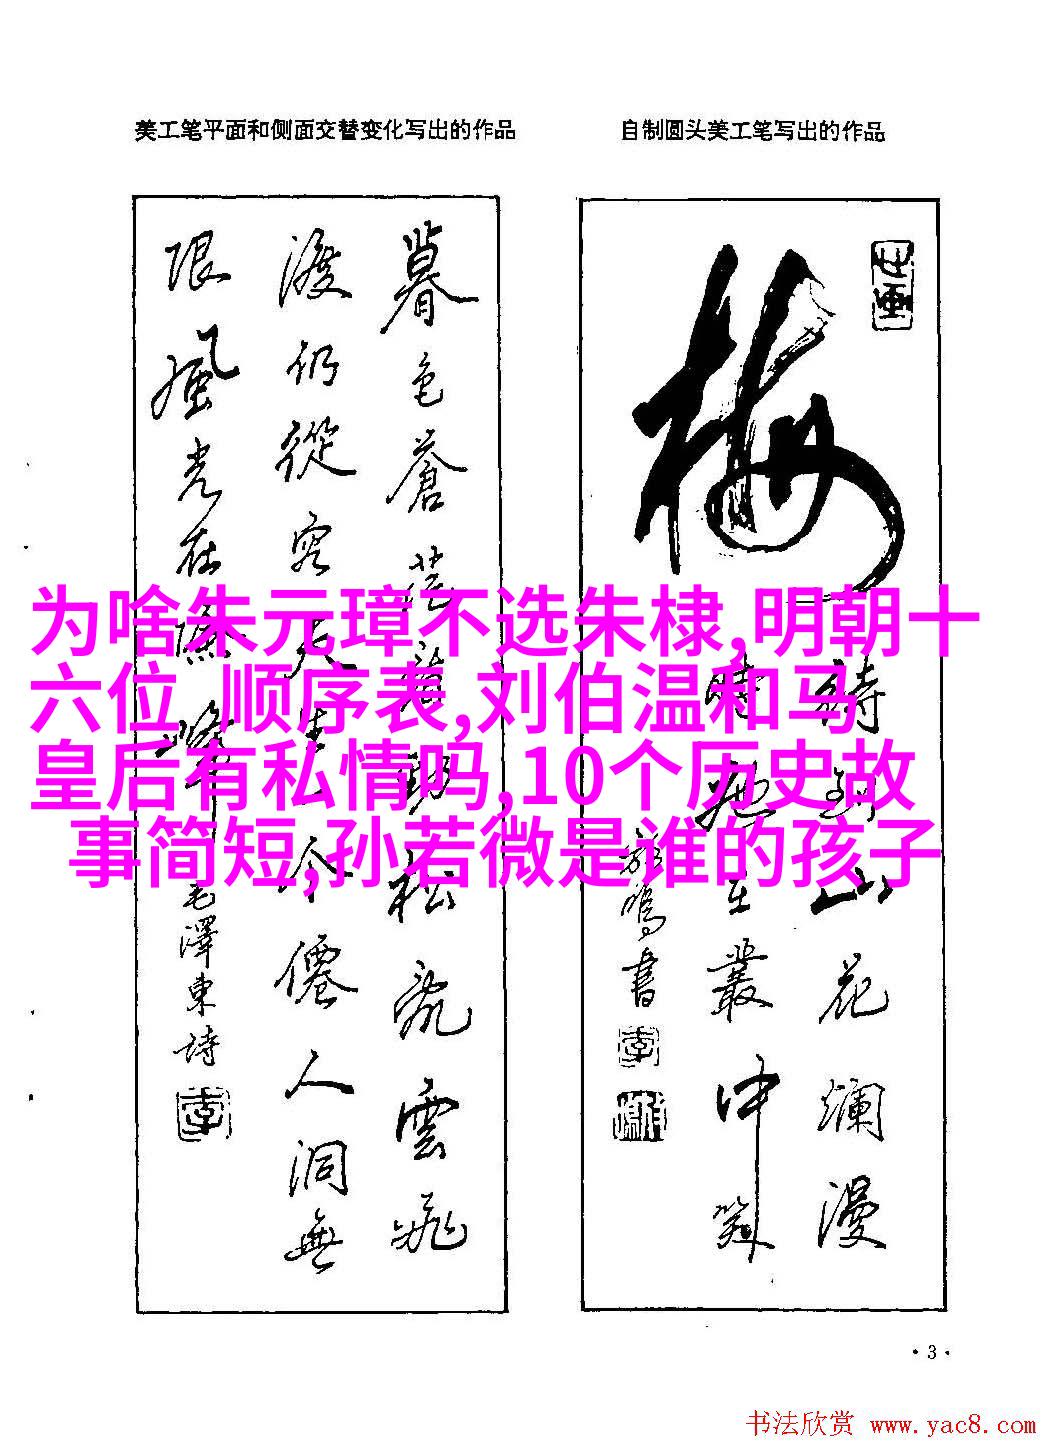 美工笔平面和侧面交替变化写出的作品
自制圆头美工笔写出的作品
暮色蒼茫看勁松亂雲飛
渡仍從容天生一个僊人洞無
限風光在險峰
毛澤東詩
梅
待到山花爛漫
時她在叢中笑
書
为啥朱元璋不选朱棣,明朝十
六位 顺序表,刘伯温和马
皇后有私情吗,10个历史故
事简短,孙若微是谁的孩子
·3·
书法欣赏 www.yac8.com